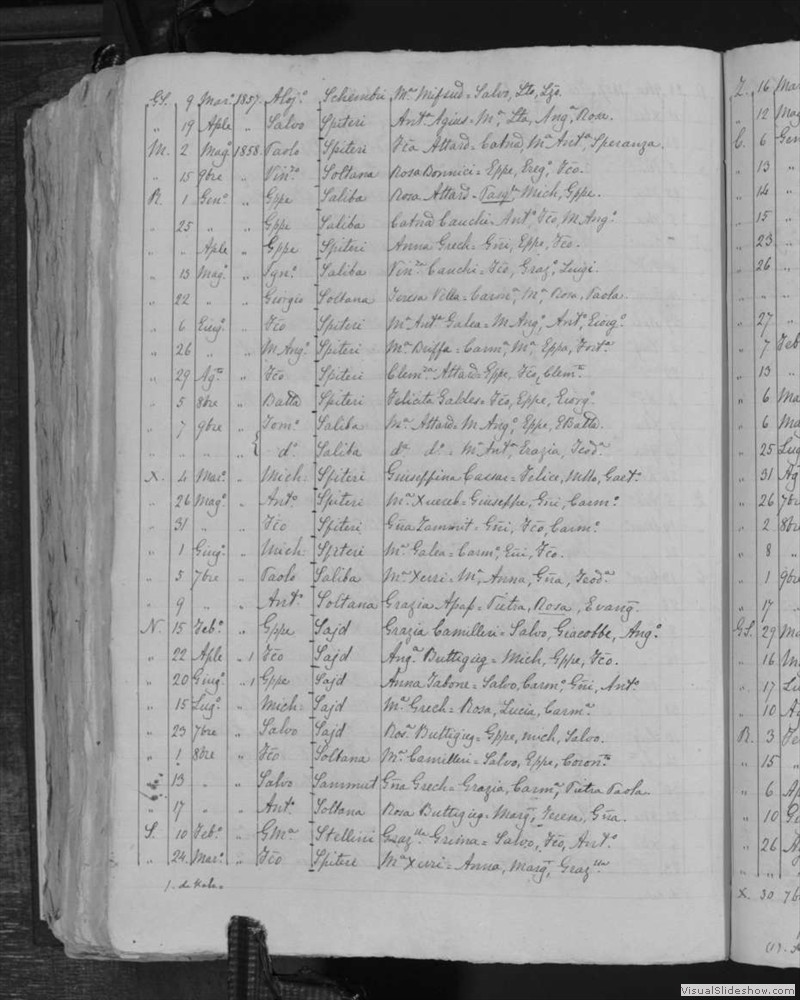 GS. 9 Mar.º 1857. Aloj.º Schembri Mª Mifsud = Salvo, Lto, Lzo.
" 19 Aple " Salvo Spiteri Antª Agius = Mª, Lta, Angª, Rosa.
M. 2 Magº 1858 Paolo Spiteri Fca Attard = Catnd, Mª Antª, Speranza.
" 15 9bre " Vinzo Soltana Rosa Bonnici = Gppe, Gregº, Fco.
R. 1 Genº " Gppe Saliba Rosa Attard = Pasqle, Mich, Gppe.
" 25 " " Gppe Saliba Catnd Cauchi = Antº, Fco, M. Angº
" " Aple " Gppe Spiteri Anna Grech = Gni, Gppe, Fco.
" 13 Magº " Ign.º Saliba Vinza Cauchi = Fco, Grazº, Luigi.
" 22 " " Giorgio Soltana Teresa Vella = Carmª, Mª Rosa, Paola.
" 6 Giugº " Fco Spiteri Mª Antª Galea = M. Angº, Antº, Giorgº
" 26 " " M. Angº Spiteri Mª Briffa = Carmª, Mª, Gppa, Fortª
" 29 Agto " Fco Spiteri Clemza Attard = Gppe, Fco, Clemte
" 5 8bre " Batta Spiteri Felicita Galdes = Fco, Gppe, Giorgº
" 7 9bre " Tomº Saliba Mª Attard = M. Angº, Gppe, GBatta.
" " " " dº Saliba dª dº = Mª Antª, Grazia, Teodª
X. 4 Marº " Mich Spiteri Giuseppina Cassar = Felice, Mtto, Gaetº
" 26 Magº " Antº Spiteri Mª Xuereb = Giuseppe, Gni, Carmº
" 31 " " Fco Spiteri Gña Zammit = Gni, Fco, Carmº
" 1 Giugº " Mich Spiteri Mª Galea = Carmº, Gni, Fco.
" 5 7bre " Paolo Saliba Mª Xerri = Mª, Anna, Gña, Teodª
" 9 " " Antº Soltana Grazia Apap = Pietra, Rosa, Evang.
N. 15 Febº " Gppe Sajd Grazia Camilleri = Salvo, Giacobbe, Angº
" 22 Aple " 1 Fco Sajd Angª Buttigieg = Mich, Gppe, Fco.
" 20 Giugº " 1 Gppe Sajd Anna Tabone = Salvo, Carmº, Gni, Antº
" 15 Lugº " Mich Sajd Mª Grech = Rosa, Lucia, Carmª
" 23 7bre " Salvo Sajd Rosª Buttigieg = Gppe, Mich, Salvo.
" 1 8bre " Fco Soltana Mª Camilleri = Salvo, Gppe, Coronº
" 13 " " Salvo Sammut Gña Grech = Grazia, Carmª, Pietra Paola.
" 17 " " Antº Soltana Rosa Buttigieg = Margª, Teresa, Gña.
S. 10 Febº " GMª Stellini Grazlla Grima = Salvo, Fco, Antº
" 24 Marº " Fco Spiteri Mª Xerri = Anna, Margª, Grazlla
Z. 16 Mar
" 12 Mag
C. 6 Gen
" 13 "
" 14 "
" 15 "
" 23 "
" 26 "
" 27 "
" 7 Feb
" 13 "
" 6 Ma
" 6 Ma
" 25 Lug
" 31 Ag
" 26 7br
" 2 8br
" 8 "
" 1 9bre
" 17 "
GS. 29 Ma
" 16 M
" 17 Lu
" 10 A
R. 3 Fe
" 15 "
" 6 Ap
" 10 G
" 26 A
X. 30 7b
VisualSlideshow.com